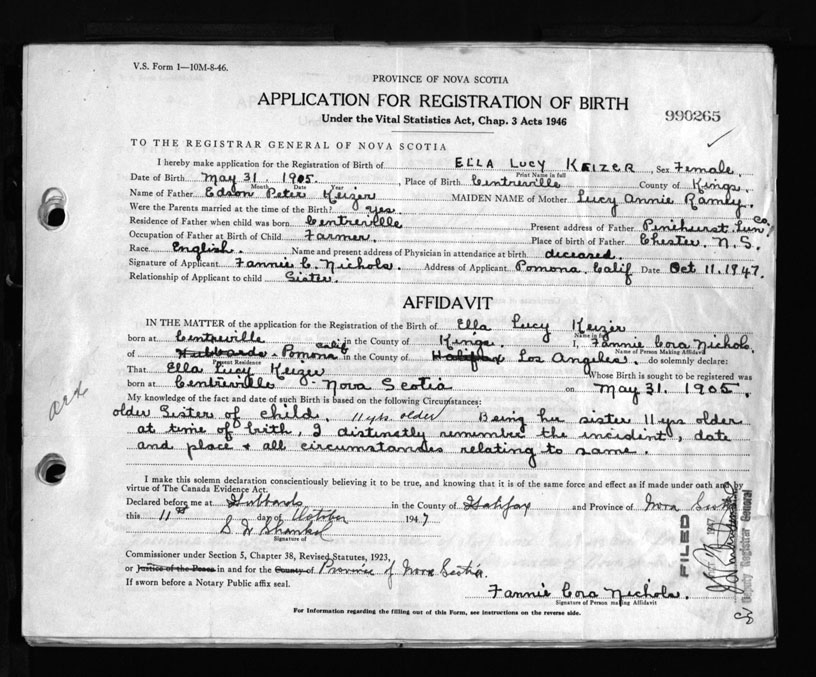 V.S. Form 1—10M-8-46.
PROVINCE OF NOVA SCOTIA
APPLICATION FOR REGISTRATION OF BIRTH
Under the Vital Statistics Act, Chap. 3 Acts 1946
990265
TO THE REGISTRAR GENERAL OF NOVA SCOTIA
I hereby make application for the Registration of Birth of ELLA LUCY KEIZER, Sex Female.
Print Name in full
Date of Birth May 31, 1905. Place of Birth Centreville County of Kings.
Month Date Year
Name of Father Edson Peter Keizer MAIDEN NAME of Mother Lucy Annie Ramey.
Were the Parents married at the time of the Birth? yes.
Residence of Father when child was born Centreville Present address of Father Pinehurst Lun. Co.
Occupation of Father at Birth of Child Farmer. Place of birth of Father Chester N.S.
Race English. Name and present address of Physician in attendance at birth deceased.
Signature of Applicant Fannie C. Nichols. Address of Applicant Pomona, Calif Date Oct 11, 1947.
Relationship of Applicant to child Sister.
AFFIDAVIT
IN THE MATTER of the application for the Registration of Birth of Ella Lucy Keizer
Name in full
born at Centreville in the County of Kings. I, Fannie Cora Nichols.
Name of Person Making Affidavit
of Hubbards - Pomona Calif in the County of Halifax Los Angeles. do solemnly declare:
Present Residence
That Ella Lucy Keizer Whose Birth is sought to be registered was
born at Centreville - Nova Scotia on May 31. 1905.
My knowledge of the fact and date of such Birth is based on the following Circumstances:
older Sister of child. 11 yrs. older Being her sister 11 yrs older
at time of brith, I distinctly remember the incident, date
and place + all circumstances relating to same.
I make this solemn declaration conscientiously believing it to be true, and knowing that it is of the same force and effect as if made under oath and by
virtue of The Canada Evidence Act.
Declared before me at Hubbards in the County of Halifax and Province of Nova Scotia
this 11th day of October 1947
Signature of
Commissioner under Section 5, Chapter 38, Revised Statutes, 1923,
or Justice of the Peace in and for the County of Province of Nova Scotia.
If sworn before a Notary Public affix seal.
Fannie Cora Nichols.
Signature of Person making Affidavit
For Information regarding the filling out of this Form, see instructions on the reverse side.
FILED
Deputy Registrar General